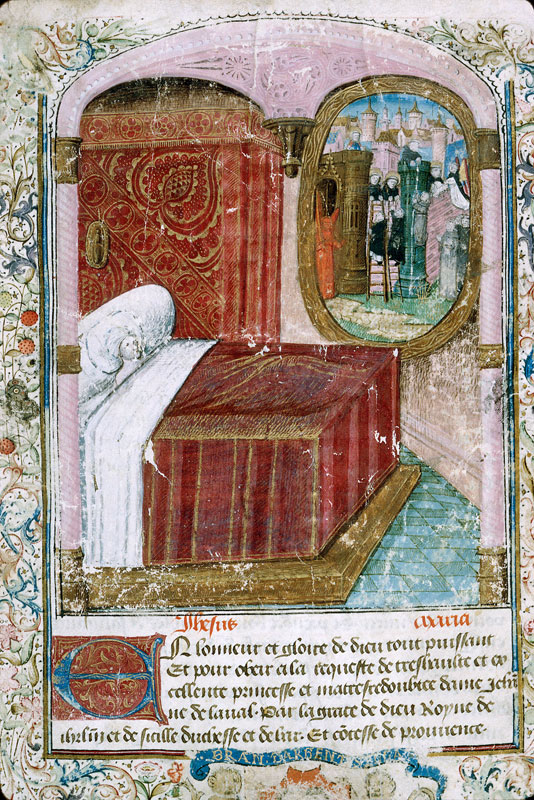 Jhesus maria
En lonneur et gloire de dieu tout puissant
Et pour obeir a la requeste de treshaulte et ex
cellente princesse et ma tresredoubtee dame Jehan
ne de laual. Par la grace de dieu Royne de
ihrlm et de sicille duchesse et de bar. Et cōtesse de prouuence.